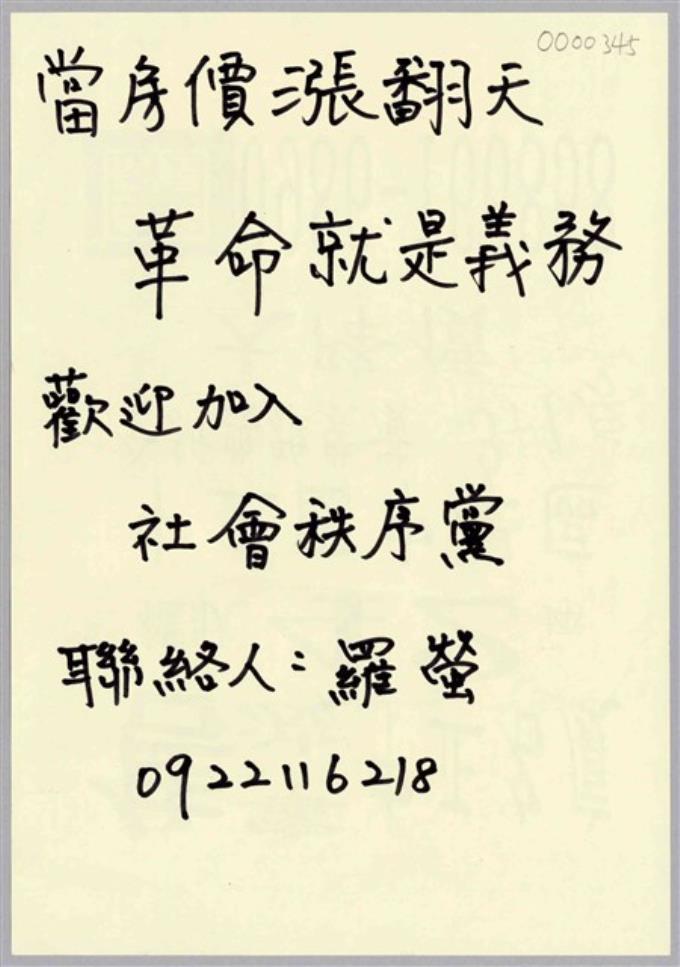 0000345
當房價漲翻天
革命就是義務
歡迎加入
社會秩序黨
聯絡人：羅螢
0922116218